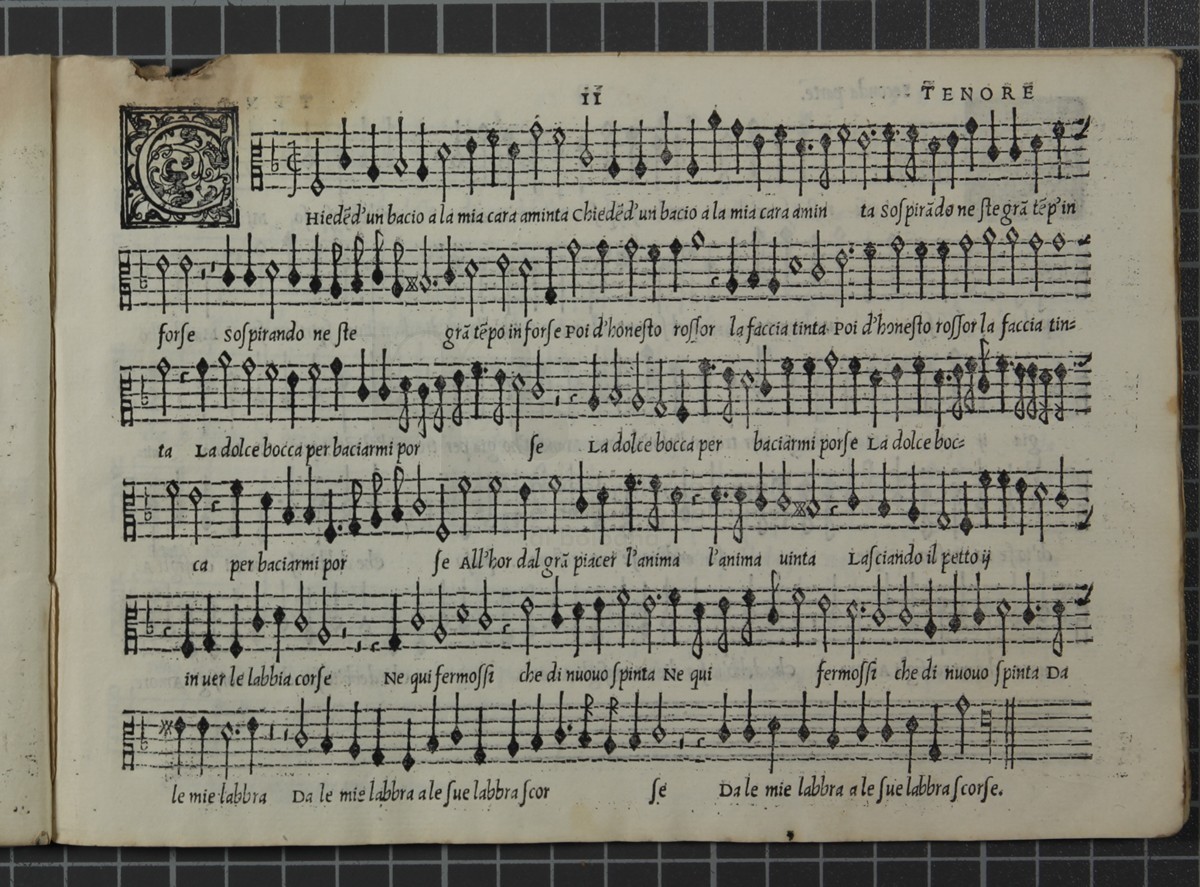 11 TENORE
CHiedēd'un bacio a la mia cara aminta Chiedēd'un bacio a la mia cara amin ta Sospirādo ne ste grā tēp'in
forse Sospirando ne ste grā tēpo in forse Poi d'honesto rossor la faccia tinta Poi d'honesto rossor la faccia tin=
ta La dolce bocca per baciarmi por se La dolce bocca per baciarmi porse La dolce boc=
ca per baciarmi por se All'hor dal grā piacer l'anima l'anima uinta Lasciando il petto ij
in uer le labbia corse Ne qui fermossi che di nuouo spinta Ne qui fermossi che di nuouo spinta Da
le mie labbra Da le mie labbra a le sue labbra scor se Da le mie labbra a le sue labbra scorse.